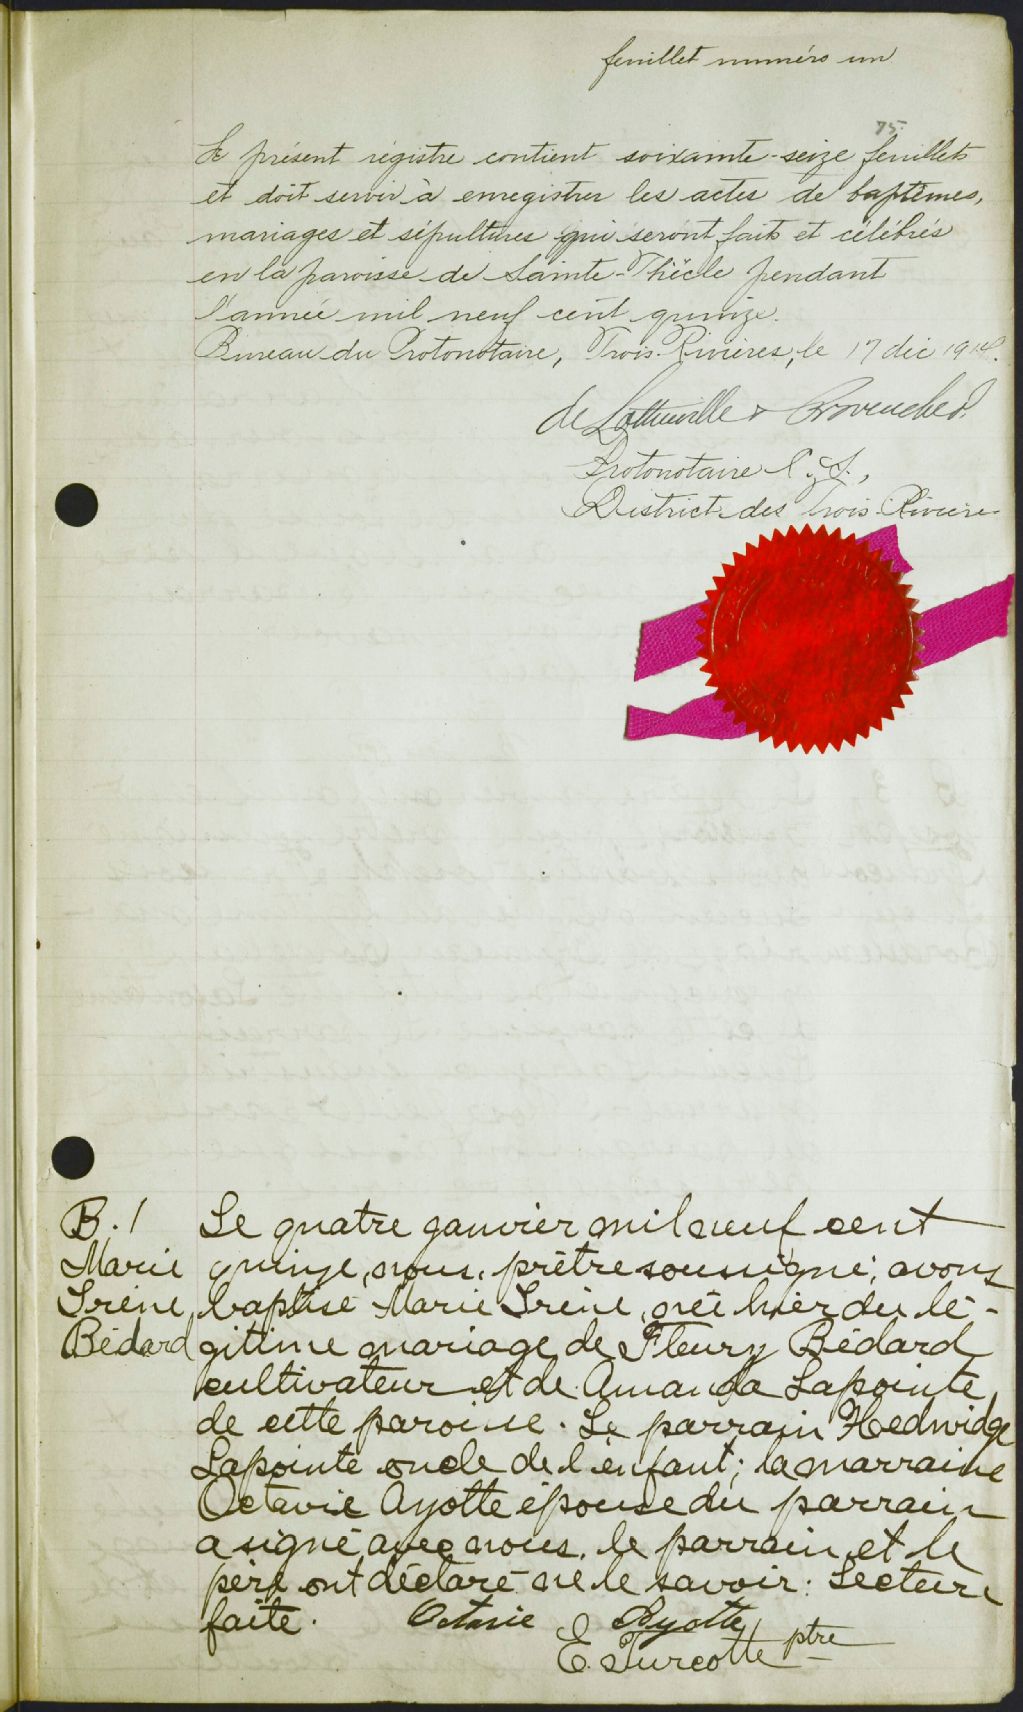 feuillet numéro un
75
Le présent régistre contient soixante-seize feuillets
et doit servir à enregistrer les actes de baptêmes,
mariages et sépultures qui seront faits et célébrés
en la paroisse de Sainte-Thècle pendant
l'année mil neuf cent quinze.
Bureau du Protonotaire, Trois-Rivières, le 17 déc 1914.
de Lottinville & Provencher
Protonotaire C. S.,
District des Trois-Rivières
B. 1
Marie
Irène
Bédard
Le quatre janvier mil neuf cent
quinze, nous, prêtre soussigné, avons
baptisé Marie Irène, née hier du lé-
gitime mariage de Fleury Bédard
cultivateur et de Amanda Lapointe,
de cette paroisse. Le parrain Hedwidge
Lapointe oncle de l'enfant; la marraine
Octavie Ayotte épouse du parrain
a signé avec nous. le parrain et le
père ont déclaré ne le savoir. Lecture
faite. Octavie Ayotte
E. Turcotte ptre